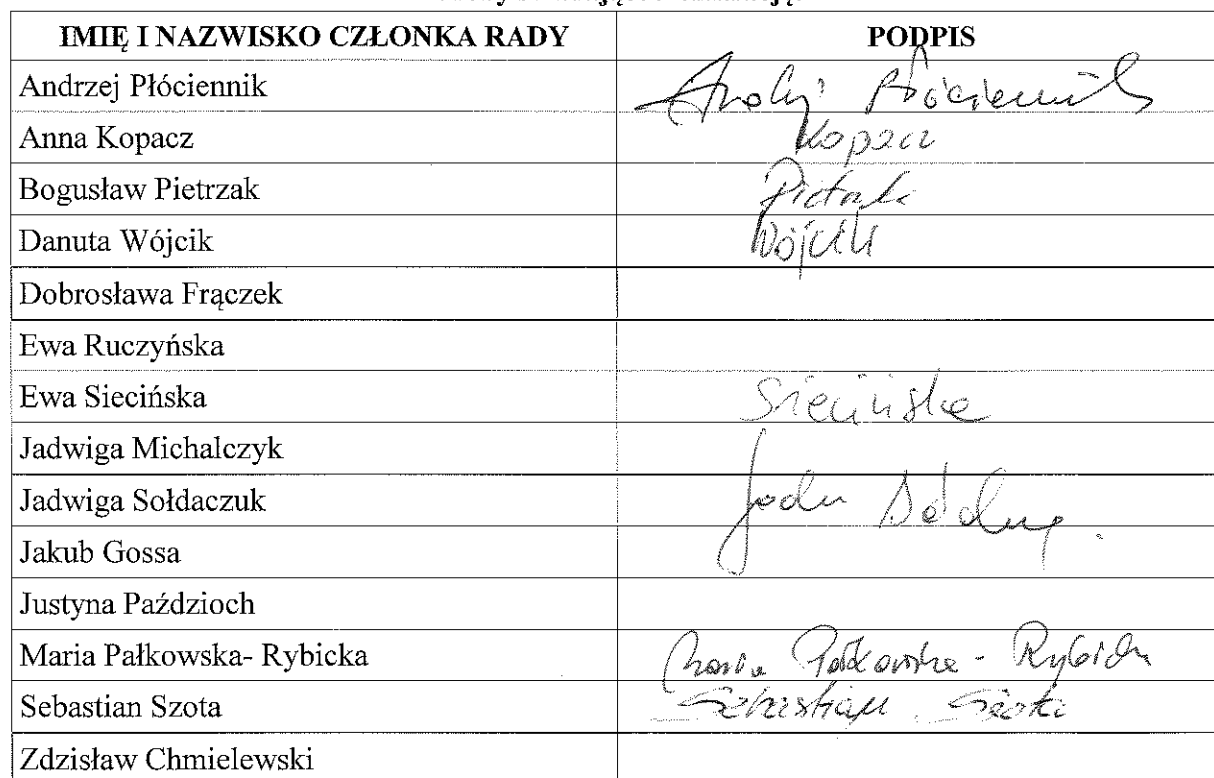 IMIĘ I NAZWISKO CZŁONKA RADY PODPIS
Andrzej Płóciennik Andrzej Płóciennik
Anna Kopacz Kopacz
Bogusław Pietrzak Pietrzak
Danuta Wójcik Wójcik
Dobrosława Frączek
Ewa Ruczyńska
Ewa Siecińska Siecińska
Jadwiga Michalczyk
Jadwiga Sołdaczuk
Jakub Gossa
Justyna Paździoch
Maria Pałkowska- Rybicka Maria Pałkowska - Rybicka
Sebastian Szota Sebastian Szota
Zdzisław Chmielewski